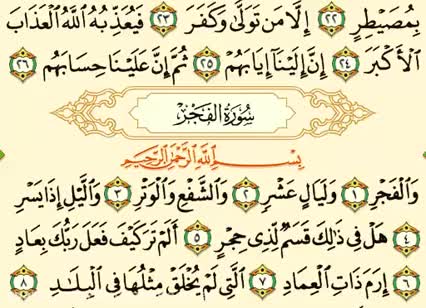 بِمُصَيْطِرٍ ٢٢ إِلَّا مَن تَوَلَّىٰ وَكَفَرَ ٢٣ فَيُعَذِّبُهُ اللَّهُ الْعَذَابَ
الْأَكْبَرَ ٢٤ إِنَّ إِلَيْنَا إِيَابَهُمْ ٢٥ ثُمَّ إِنَّ عَلَيْنَا حِسَابَهُم ٢٦
سُورَةُ الْفَجْرِ
بِسْمِ اللَّهِ الرَّحْمَٰنِ الرَّحِيمِ
وَالْفَجْرِ ١ وَلَيَالٍ عَشْرٍ ٢ وَالشَّفْعِ وَالْوَتْرِ ٣ وَاللَّيْلِ إِذَا يَسْرِ
٤ هَلْ فِي ذَٰلِكَ قَسَمٌ لِّذِي حِجْرٍ ٥ أَلَمْ تَرَ كَيْفَ فَعَلَ رَبُّكَ بِعَادٍ
٦ إِرَمَ ذَاتِ الْعِمَادِ ٧ الَّتِي لَمْ يُخْلَقْ مِثْلُهَا فِي الْبِلَادِ ٨